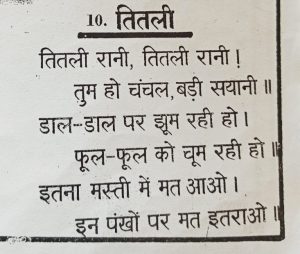 10. तितली
तितली रानी, तितली रानी !
तुम हो चंचल, बड़ी सयानी ॥
डाल-डाल पर झूम रही हो ।
फूल-फूल को चूम रही हो ॥
इतना मस्ती में मत आओ ।
इन पंखों पर मत इतराओ ॥